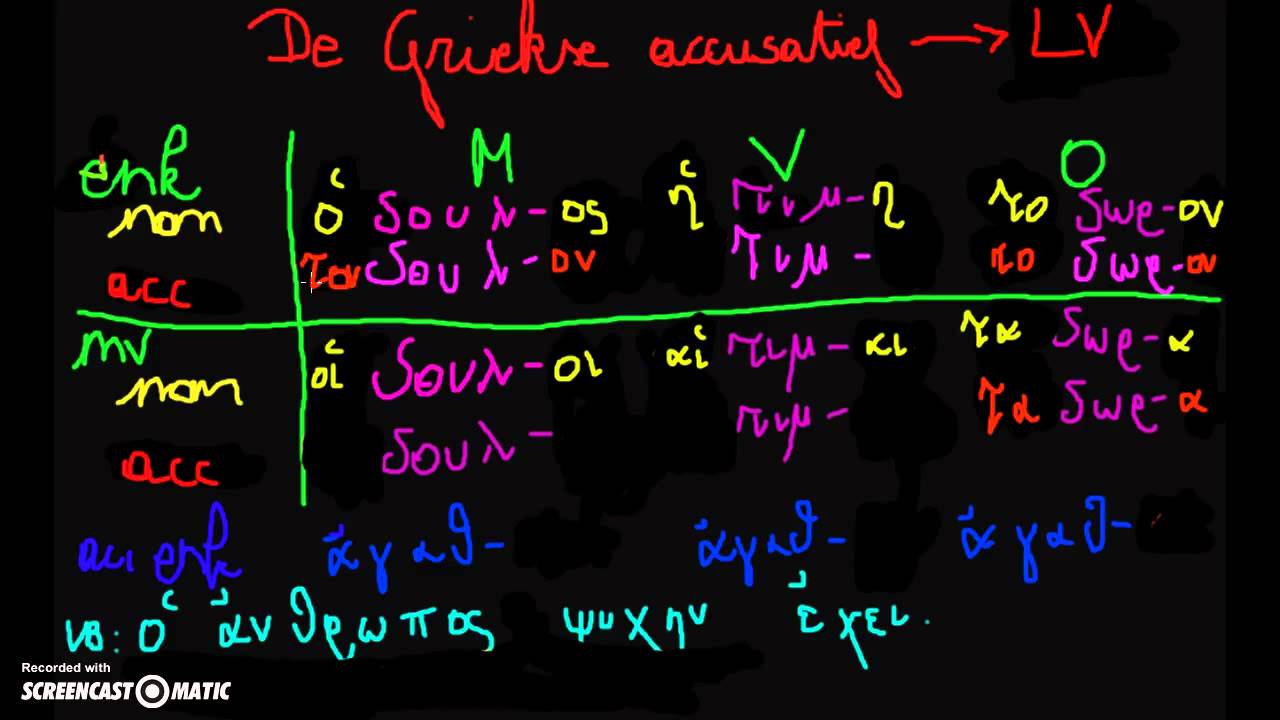 De Griekse accusatief → LV
enk M V O
nom ὁ δουλ-ος ἡ τιμ-η το δωρ-ον
acc τον δουλ-ον τιμ- το δωρ-ον
mv
nom οἱ δουλ-οι αἱ τιμ-αι τα δωρ-α
acc δουλ- τιμ- τα δωρ-α
acc enk ἀγαθ- ἀγαθ- ἀγαθ-
VB: ὁ ἀνθρωπος ψυχην ἐχει.
Recorded with
SCREENCAST-O-MATIC